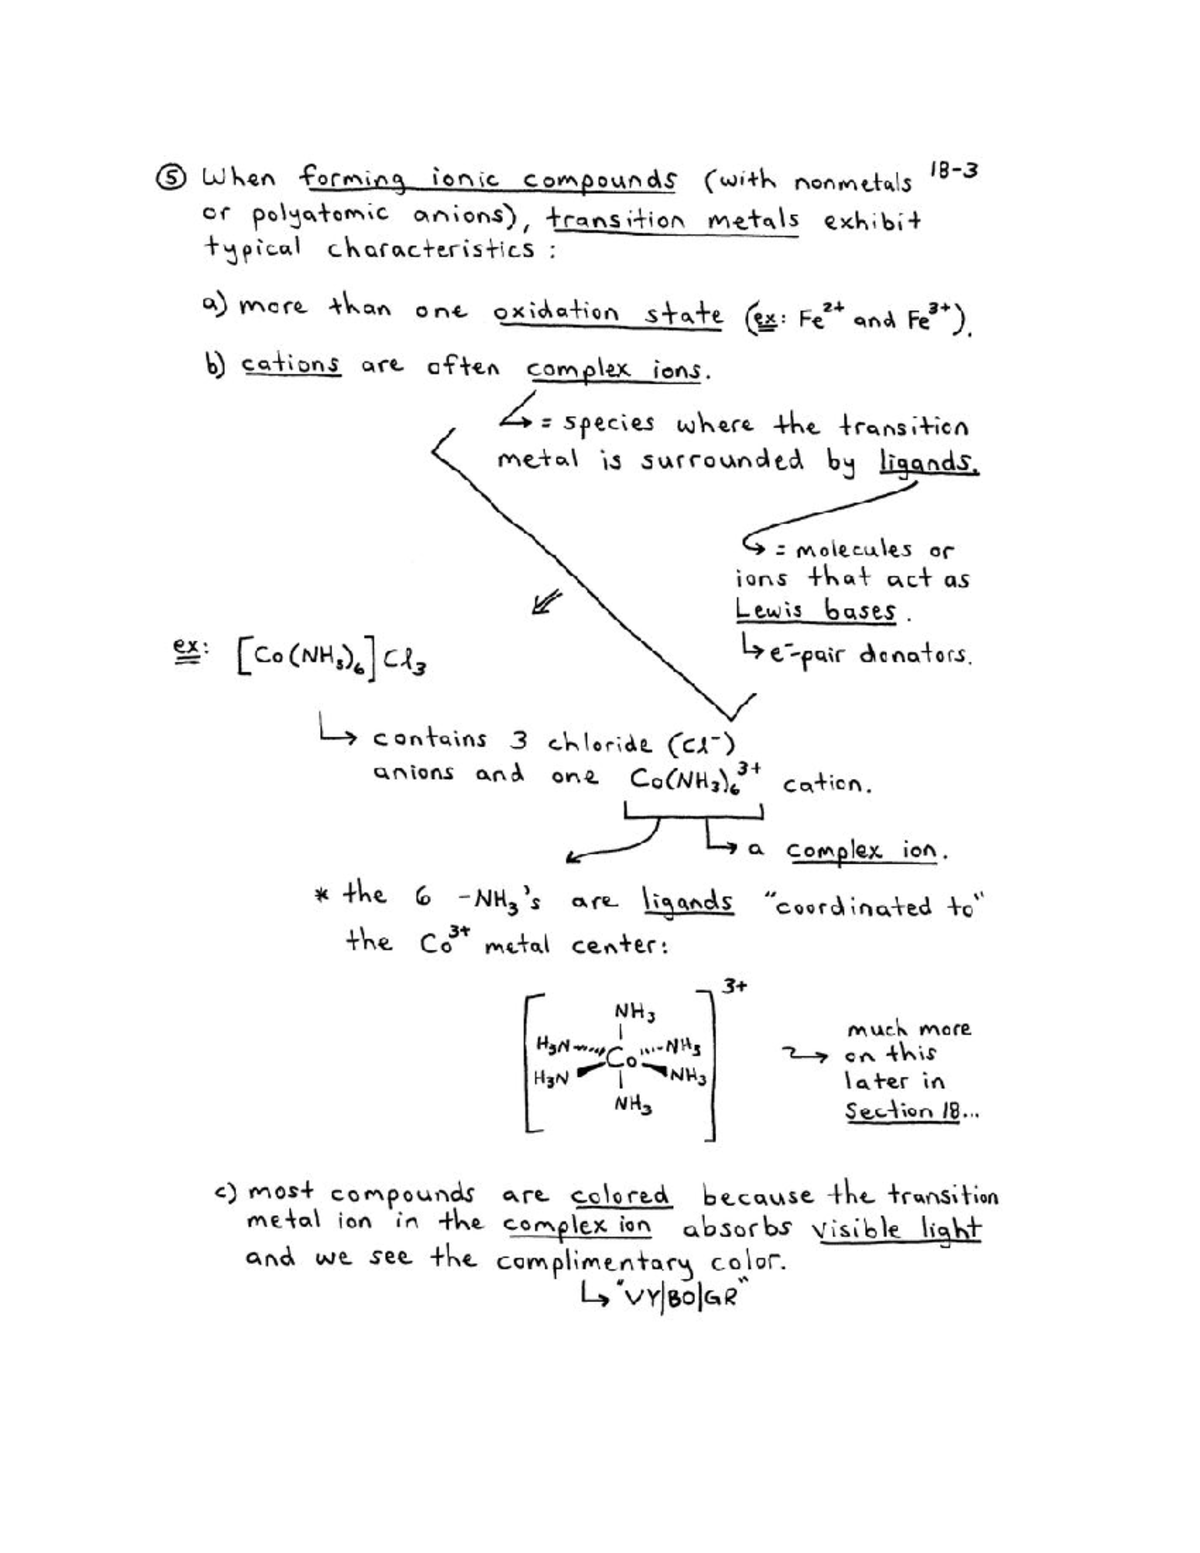 18-3
⑤ When forming ionic compounds (with nonmetals
or polyatomic anions), transition metals exhibit
typical characteristics :
a) more than one oxidation state (ex: Fe²⁺ and Fe³⁺).
b) cations are often complex ions.
↳ = species where the transition
metal is surrounded by ligands.
↳ = molecules or
ions that act as
Lewis bases .
↳ e⁻-pair donators.
ex: [Co(NH₃)₆]Cl₃
↳ contains 3 chloride (Cl⁻)
anions and one Co(NH₃)₆³⁺ cation.
↳ a complex ion.
* the 6 -NH₃'s are ligands "coordinated to"
the Co³⁺ metal center:
3+
NH₃
H₃N Co NH₃
H₃N NH₃
NH₃
much more
→ on this
later in
Section 18...
c) most compounds are colored because the transition
metal ion in the complex ion absorbs visible light
and we see the complimentary color.
↳ "VY|BO|GR"